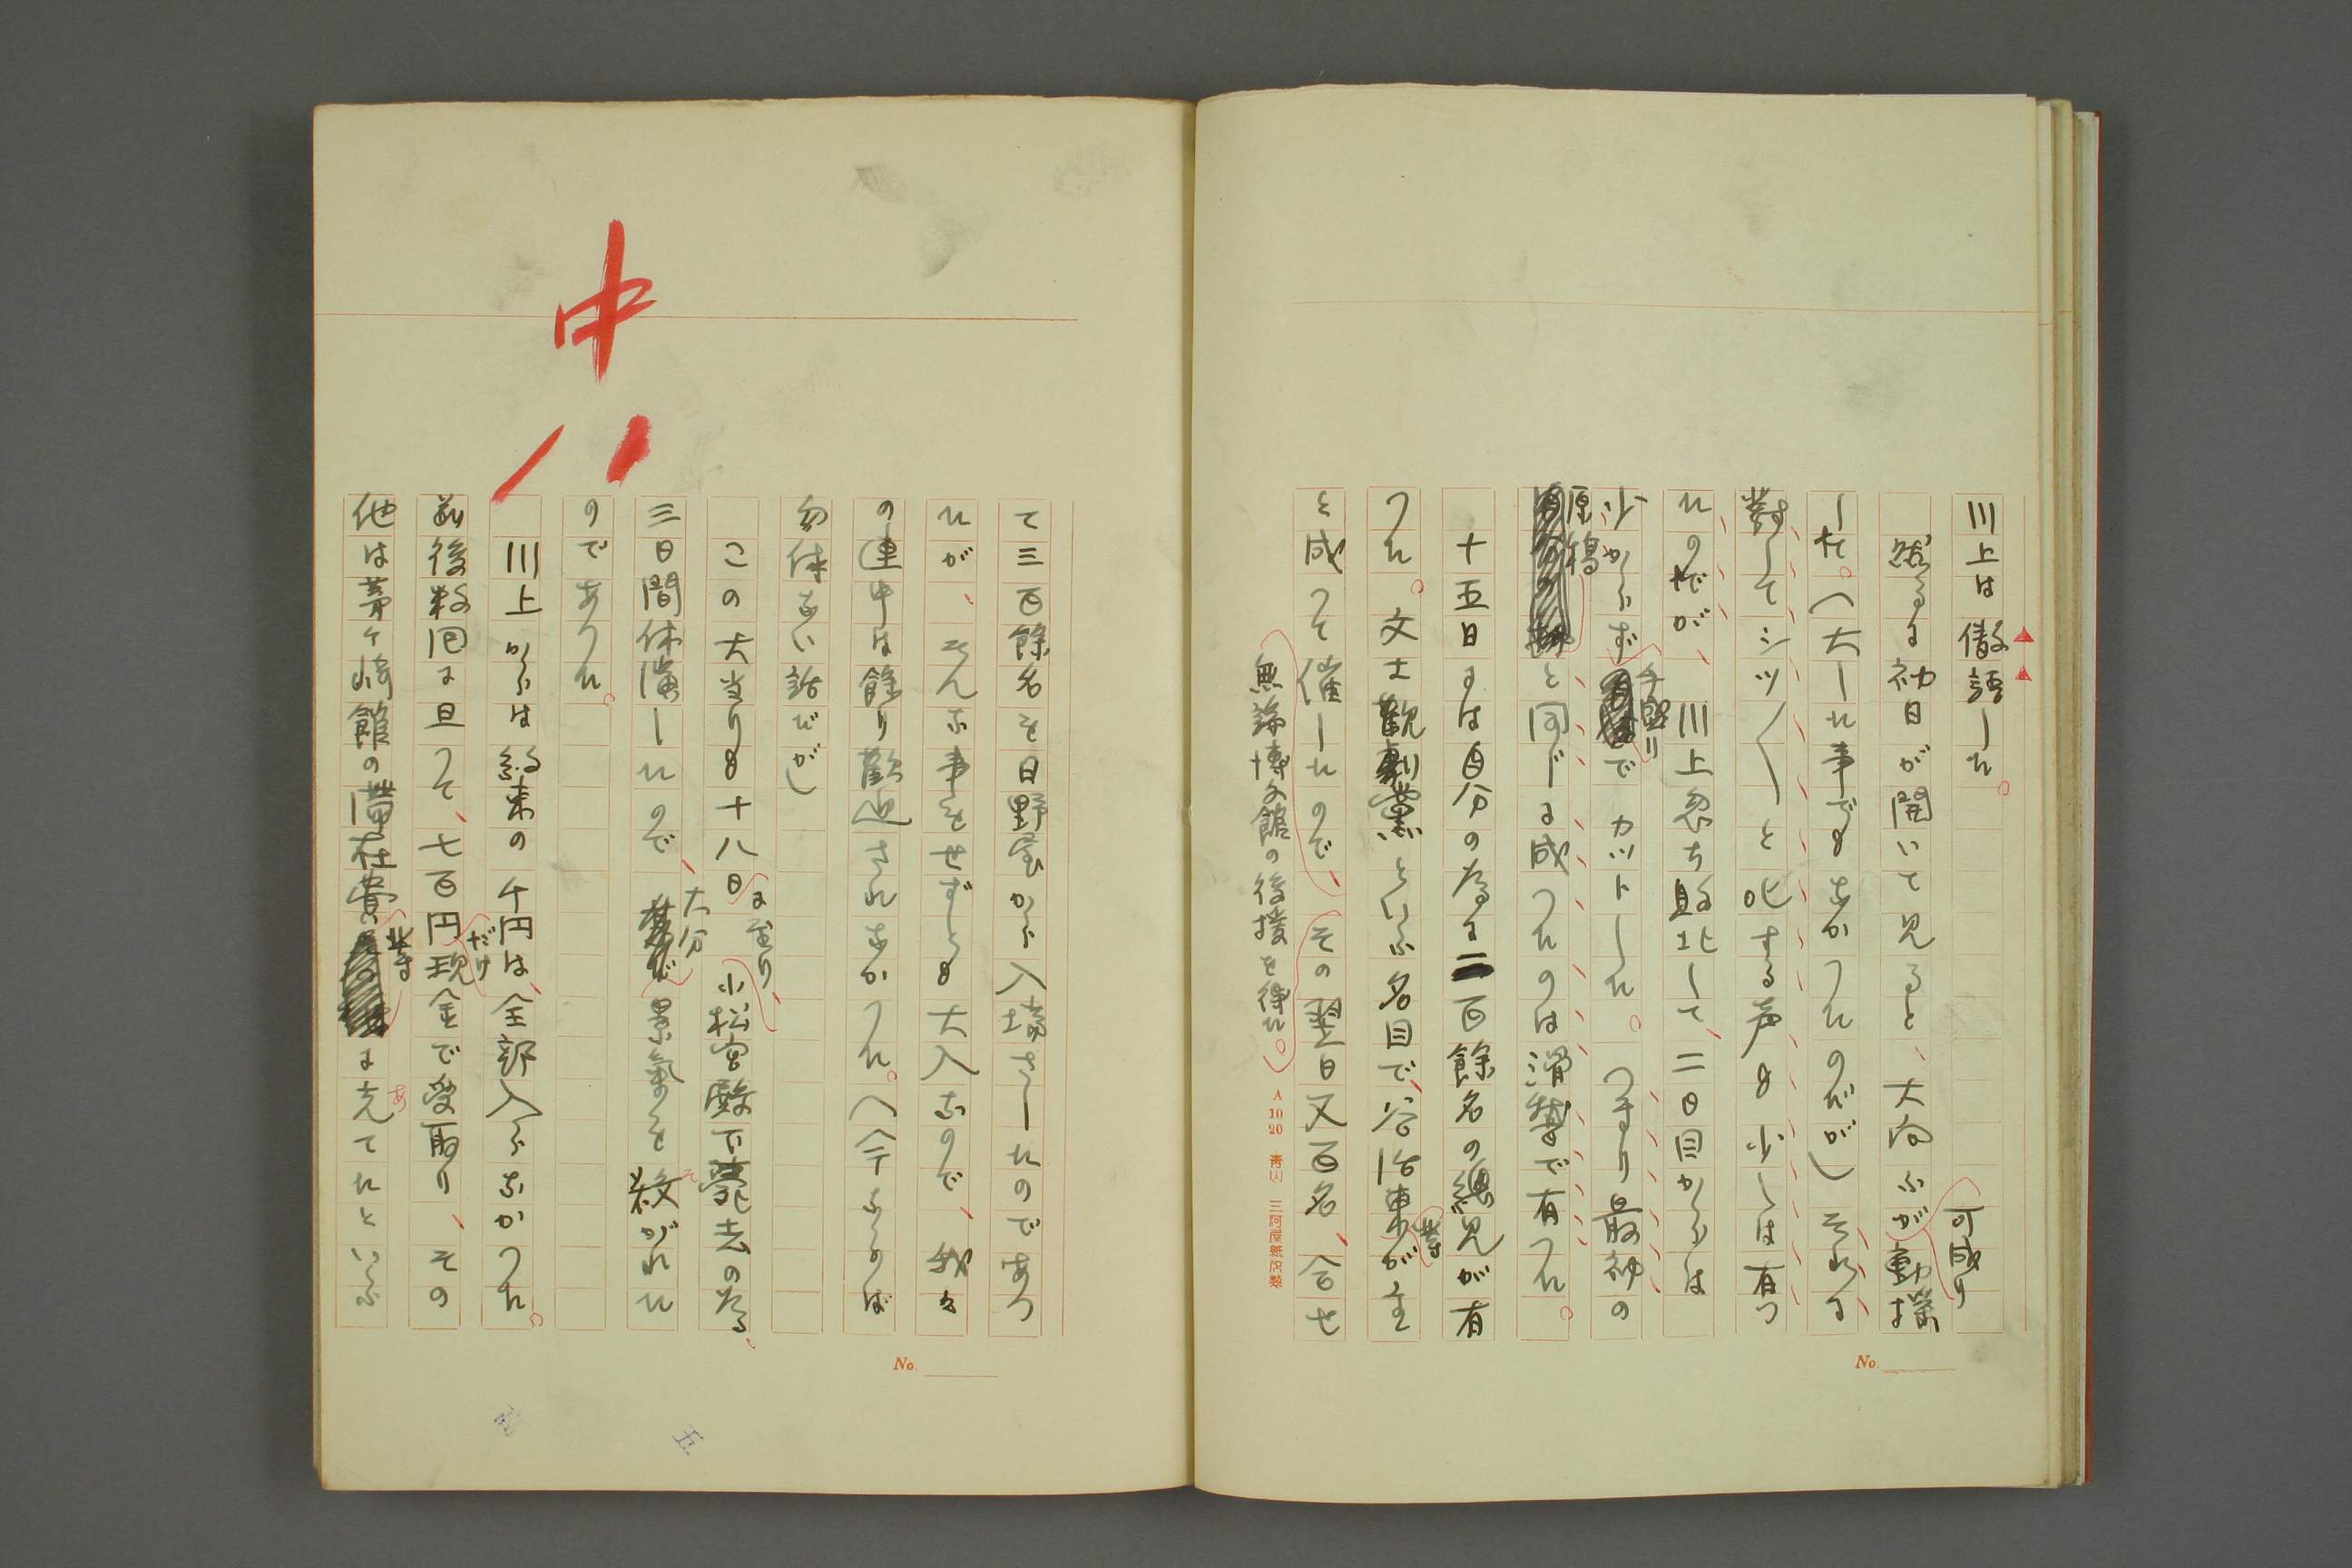 川上は傲語した。
然るに初日が開いて見ると、大向ふが可成り動揺
した。(大した事でもなかつたのだが)それに
對してシッ〱と叱する声も少しは有つ
たのだが、川上忽ち敗北して、二日目からは
少からず手盛りでカットした。つまり最初の
原稿と同じに成つたのは滑稽で有つた。
十五日には自分の為に二百餘名の總見が有
つた。文士觀劇黨といふ名目で、谷活東等が主
と成つて催したのでその翌日又百名、合せ
無論博文館の後援を待た。
A 10 20 青山 三河屋紙店製
No.
て三百餘名を日野屋から入場さしたのであつ
たが、そんな事をせずとも大入なので、我々
の連中は餘り歡迎されなかつた。(今ならば
勿体ない話だが)
この大当りも十八日に至り、小松宮殿下薨去の為、
三日間休演したので、大分景氣を殺がれた
のであつた。
川上からは約束の千円は、全部入らなかつた。
前後数回に旦つて、七百円だけ現金で受取り、その
他は茅ヶ崎館の滞在費等に充てたといふ
No.
中
八
五